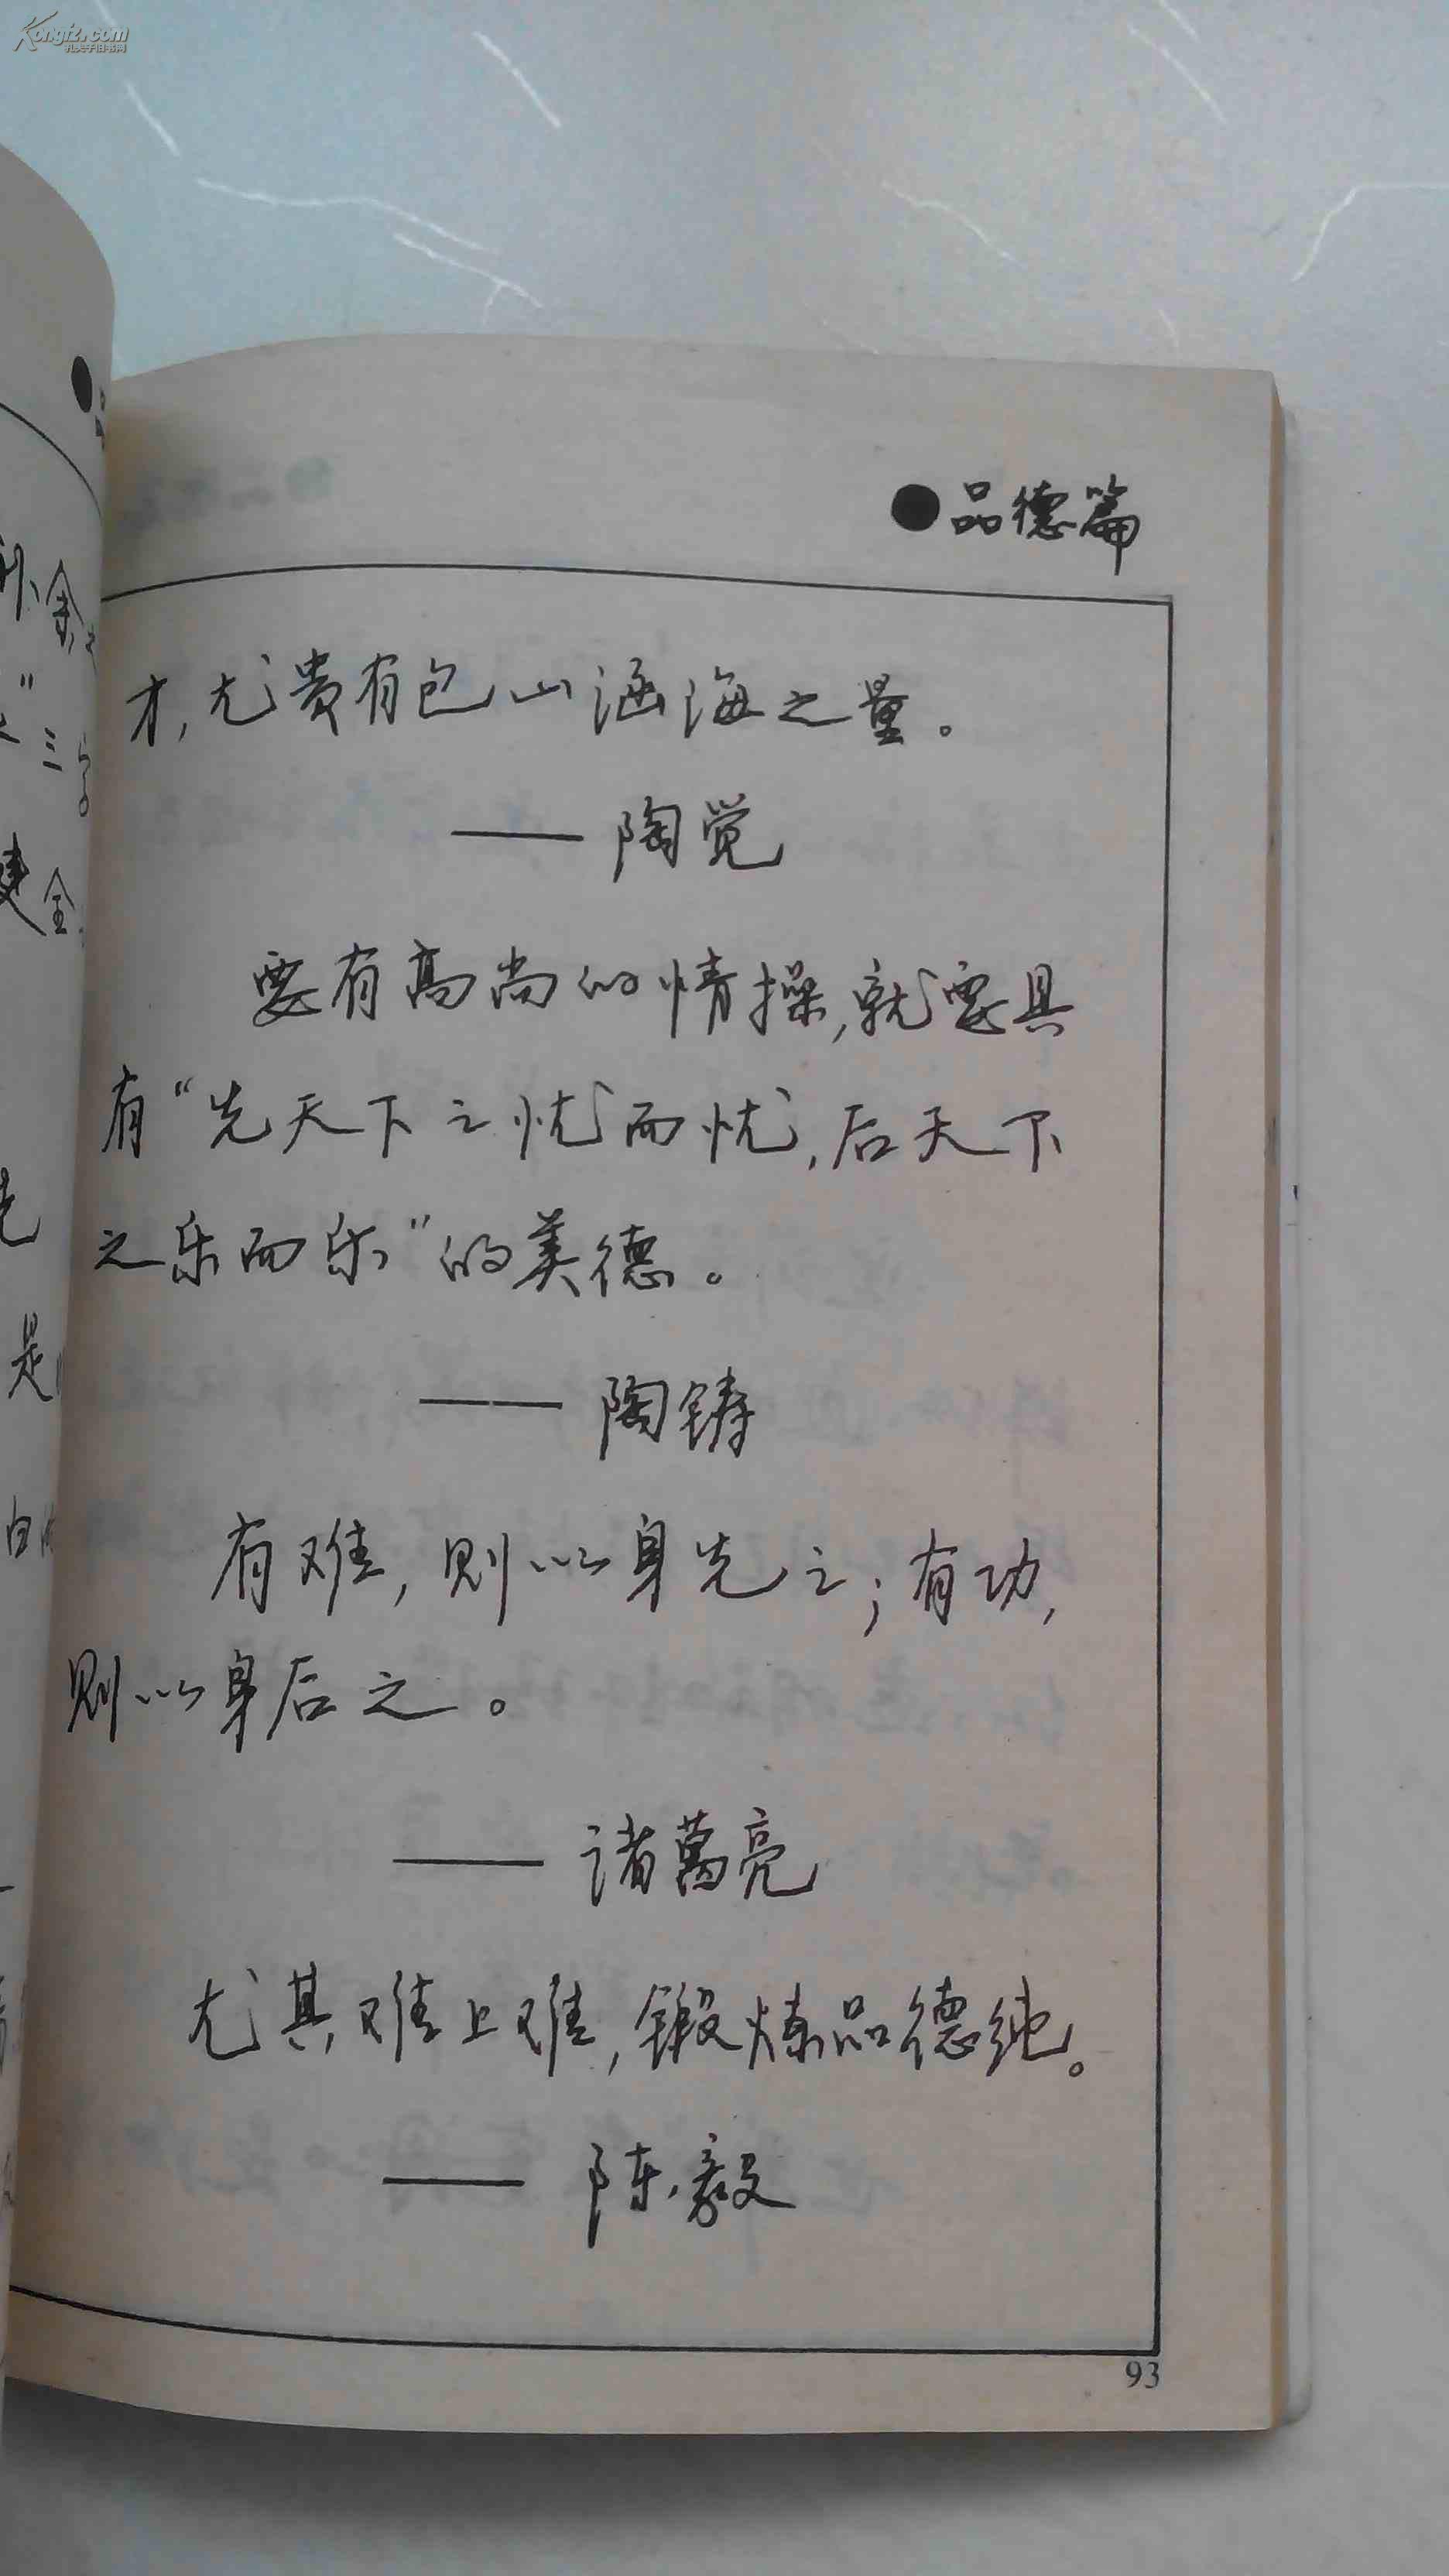 Kongfz.com
孔夫子旧书网
●品德篇
才,尤贵有包山涵海之量。
——陶觉
要有高尚的情操,就要具
有“先天下之忧而忧,后天下
之乐而乐”的美德。
——陶铸
有难,则以身先之;有功,
则以身后之。
——诸葛亮
尤其难上难,锻炼品德纯。
——陈毅
93
余之
”三字
建全
是
白